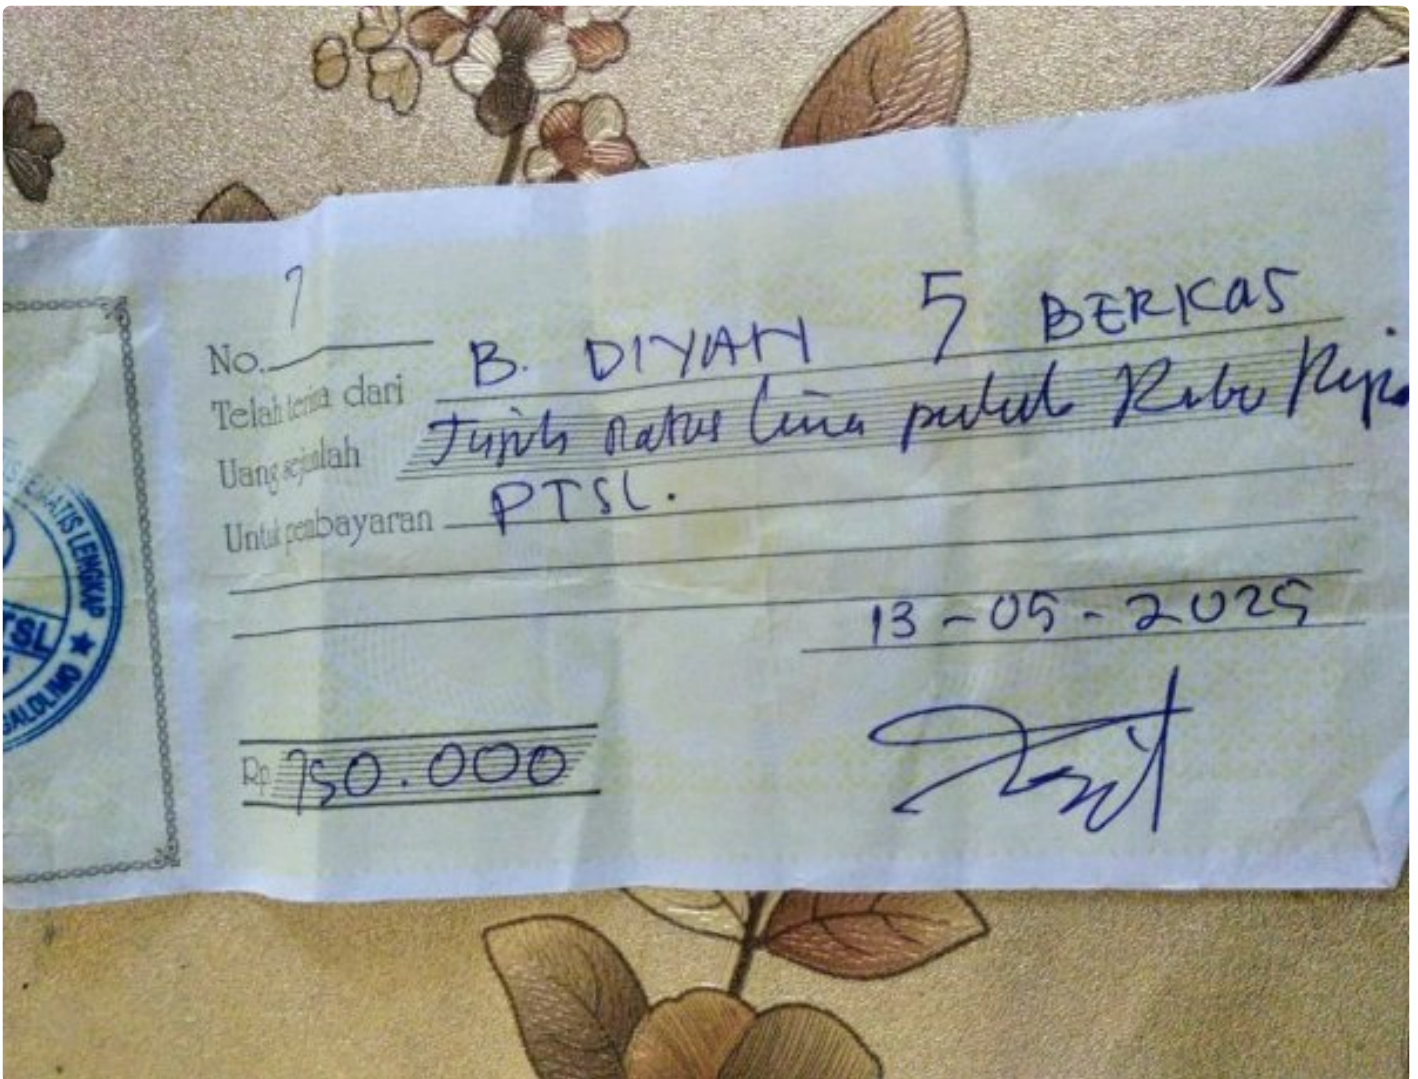 7
No.
Telah terima dari B. DIYAH 5 BERKAS
Uang sejumlah Tujuh Ratus lima puluh Ribu Rupia
Untuk pembayaran PTSL.
13-05-2025
Rp 750.000
EMATIS LENGKAP
TSL
SALDLIMO